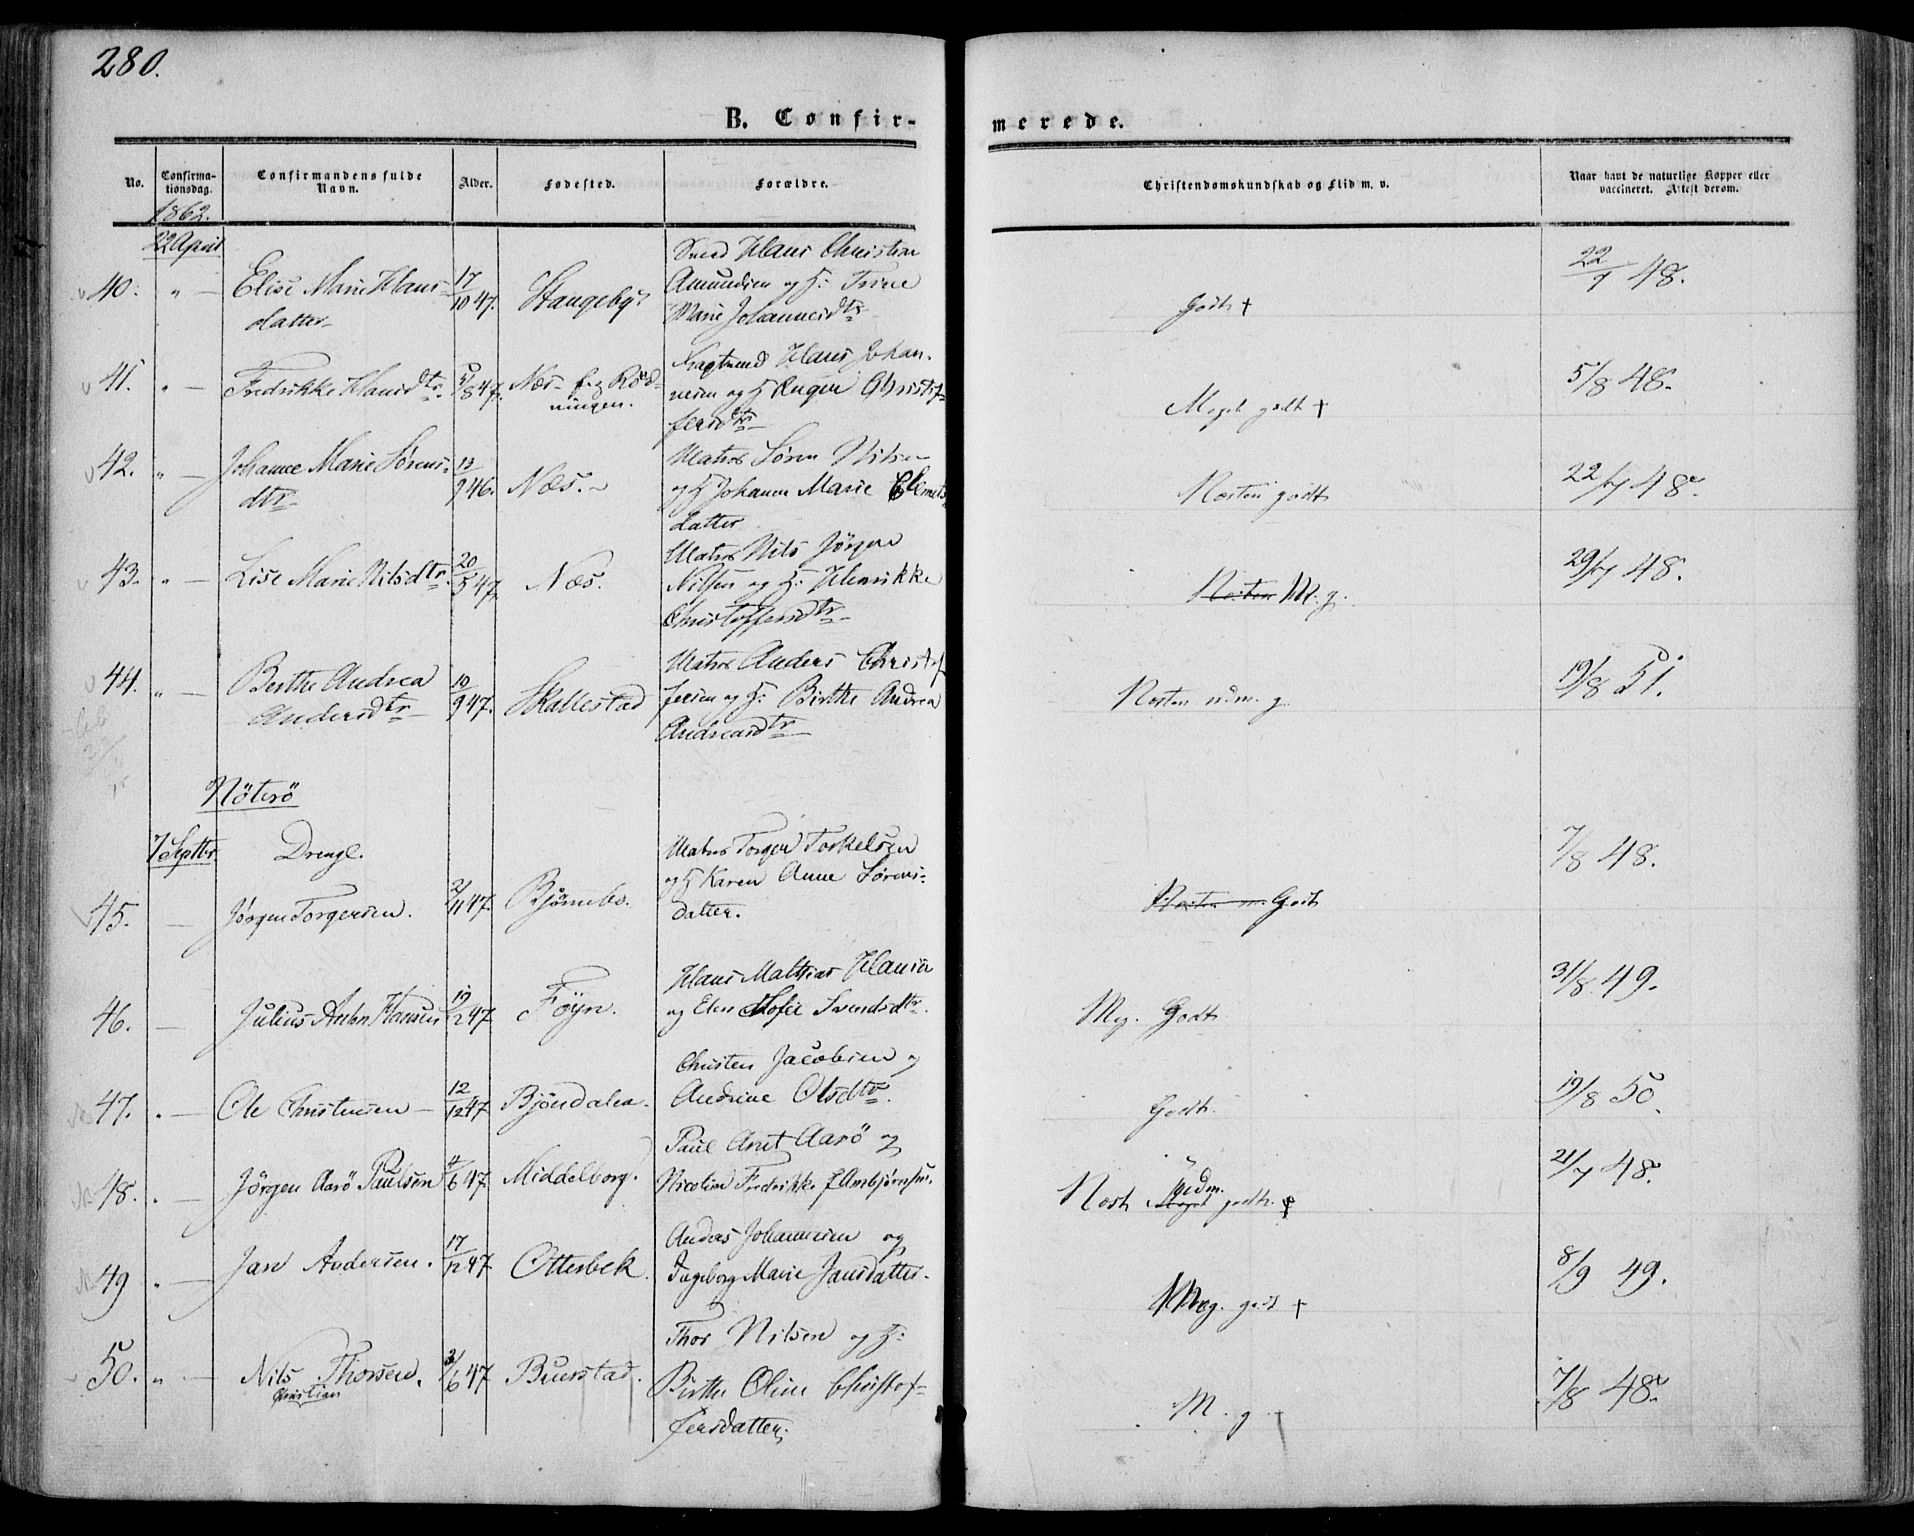 280.
B. Confirmerede.
No. Confirmationsdag. Confirmandens fulde Navn. Alder. Fødested. Forældre. Christendomskundskab og Flid m. v. Naar havt de naturlige Kopper eller vaccineret. Attest derom.
1862.
22 April
40. " — Elise Marie Hans- 17/10 47. Stangeby. Smed Hans Christian
datter Amundsen og H: Trine
Marie Johannesdtr
Godt + 22/7 48.
41. " — Fredrikke Hansdtr. 5/8 47. Næs Hans Johan-
nesen og H Inger Christof-
fersdtr
Meget godt + 5/8 48.
42. " — Johanne Marie Sørens- 13/9 46. Næs. Matros Søren Nilsen
dtr og H Johanne Marie Clemets
datter
Næsten godt 22/7 48.
43. " — Lise Marie Nilsdtr. 20/5 47. Næs. Matros Nils Jörgen
Nilsen og H: Henrikke
Christoffersdtr
Næsten M. g. 29/7 48.
44. " — Berthe Andrea 10/9 47. Skallestad Matros Anders Christof
Andersdtr fersen og H: Birthe Andrea
Andreasdtr
Næsten udm. g. 19/8 51.
Nöterö
7 Septbr. Drenge.
45. — Jörgen Torgersen. 2/11 47. Bjørnebo. Matros Torger Torkelsen
og H Karen Anne Sørens-
datter.
Næsten m. Godt 7/8 48.
46. — Julius Anton Hansen 19/12 47 Föyn. Hans Mathias Hansen
og Elen Sofie Svendsdtr.
Meg. Godt. 31/8 49.
47. " — Ole Christensen — 12/12 47 Bjöndalen. Christen Jacobsen og
Andrine Olsdtr.
Godt. 19/8 50.
48. " — Jörgen Aarö Paulsen 4/6 47. Middelborg. Paul Arnt Aarö og
Nicoline Fredrikke f Ambjørnsen.
Næst udm. Meget godt. + 21/7 48.
49 " — Jan Andersen. 17/12 47 Otterbek. Anders Johannesen og
Ingeborg Marie Jansdatter.
Meg. godt + 8/9 49.
50. " — Nils Thorsen. 3/6 47 Buerstad. Thor Nilsen og H:
Christian Birthe Oline Christof-
fersdatter.
M. g. 7/8 48.